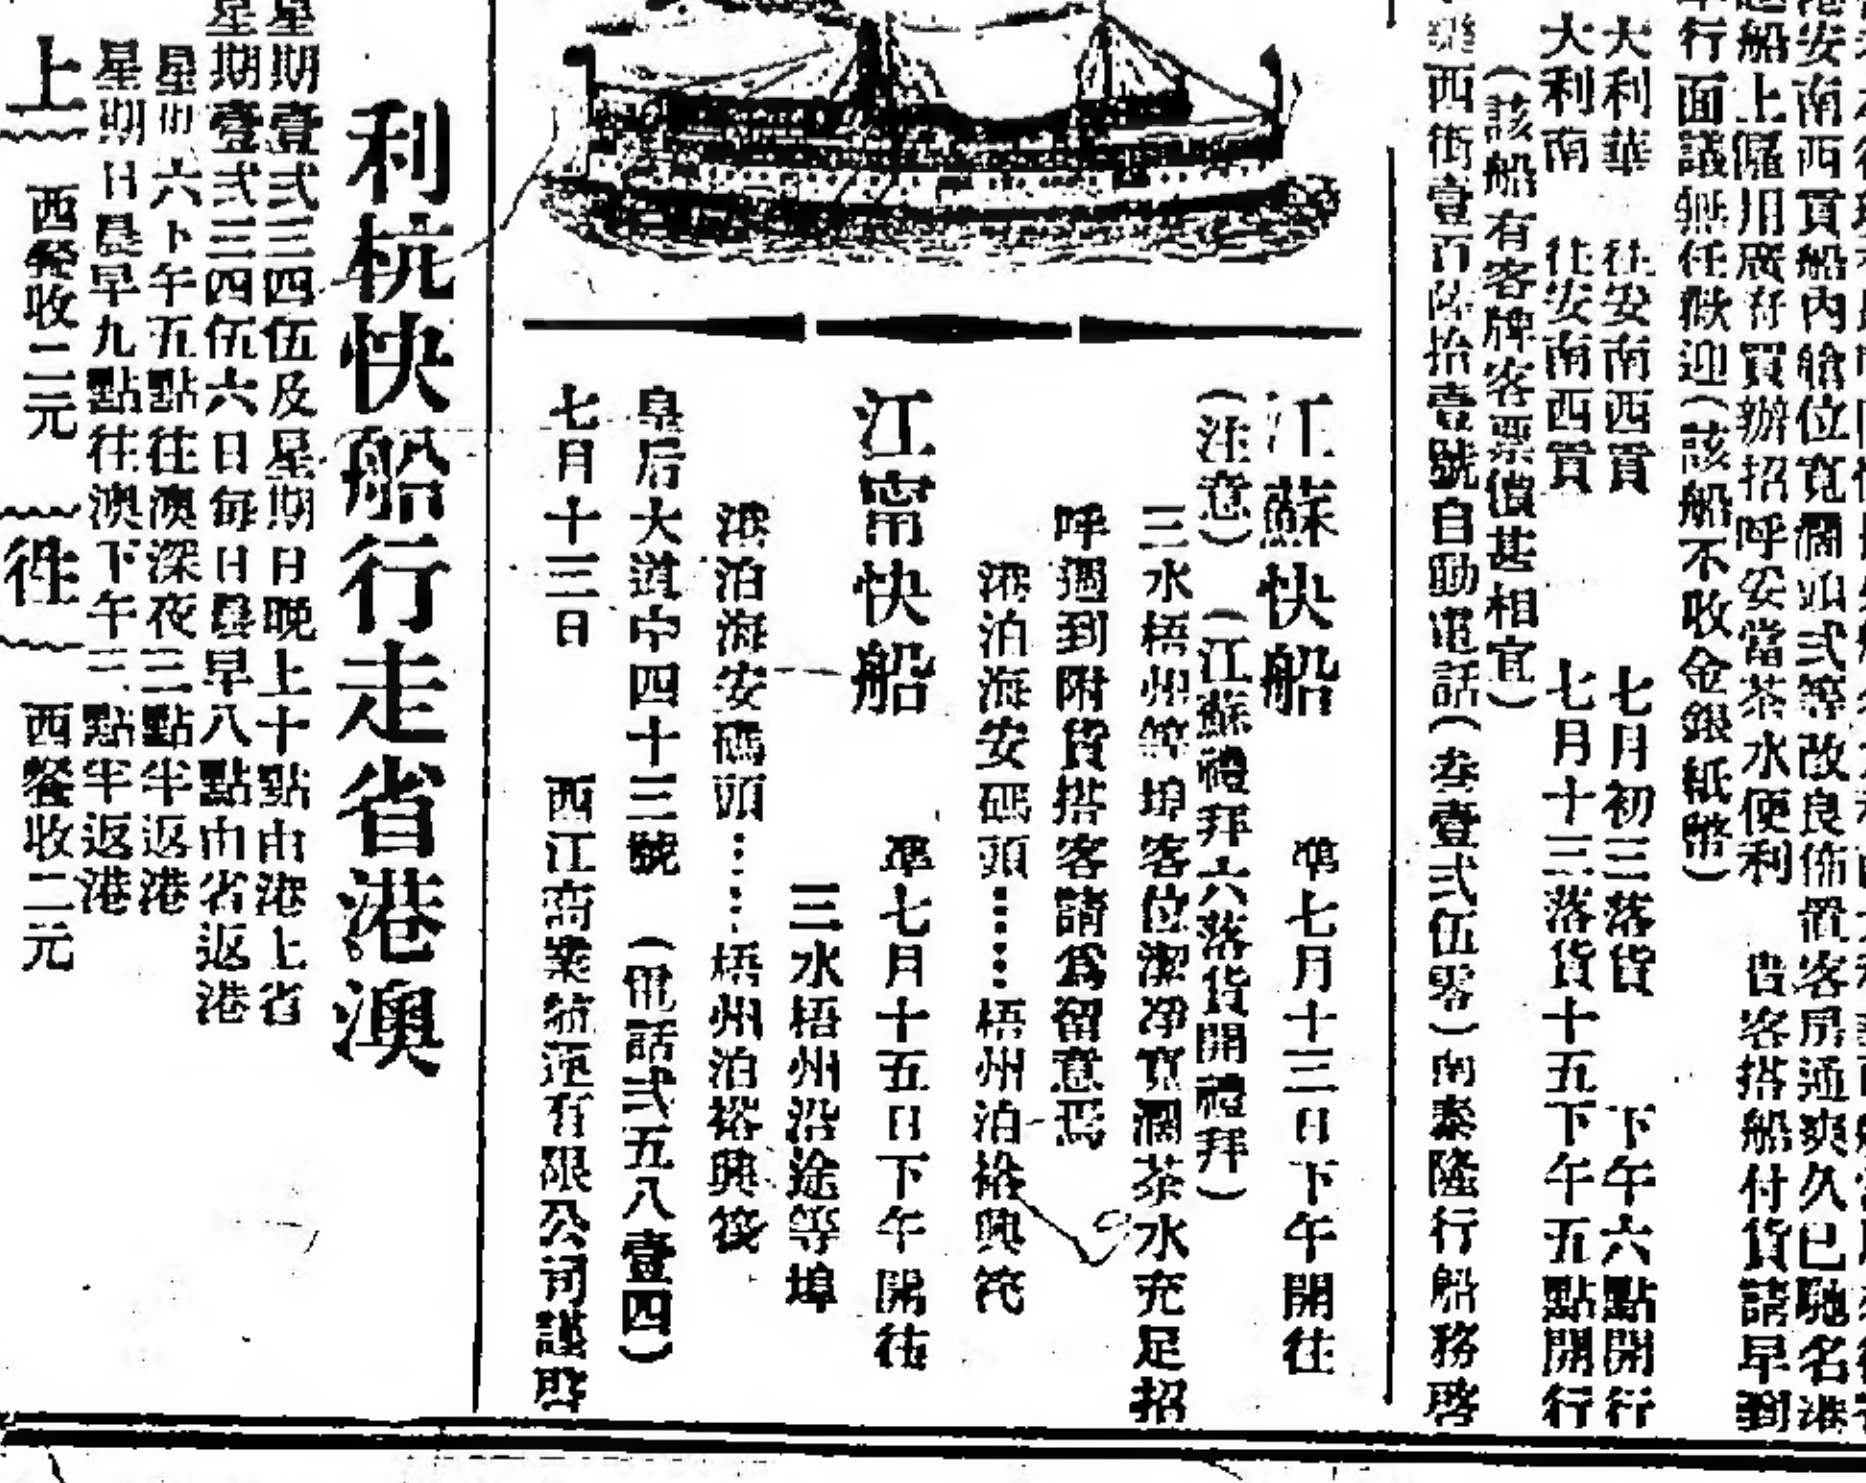 港安南西貢船內艙位寬濶頭弍等改良佈置客房通爽久已馳名港
船上僱用廣府買辦招呼妥當茶水便利 貴客搭船付貨請早到
行面議無任歡迎(該船不收金銀紙幣)
大利華 往安南西貢 七月初三落貨 下午六點開行
大利南 往安南西貢 七月十三落貨十五下午五點開行
(該船有客牌客票價甚相宜)
西街壹百陸拾壹號自動電話(叁壹弍伍零)南泰隆行船務啓
江蘇快船 準七月十三日下午開往
(注意) (江蘇禮拜六落貨開禮拜)
三水梧州等埠客位潔淨寬濶茶水充足招
呼週到附貨搭客請爲留意焉
港泊海安碼頭……梧州泊裕興筏
江甯快船 準七月十五日下午開往
三水梧州沿途等埠
港泊海安碼頭……梧州泊裕興筏
皇后大道中四十三號 (電話弍五八壹四)
七月十三日 西江商業航運有限公司謹啓
利杭快船行走省港澳
星期壹弍三四伍及星期日晚上十點由港上省
星期壹弍三四伍六日每日晨早八點由省返港
星期六下午五點往澳深夜三點半返港
星期日晨早九點往澳下午三點半返港
上 西餐收二元 徃 西餐收二元